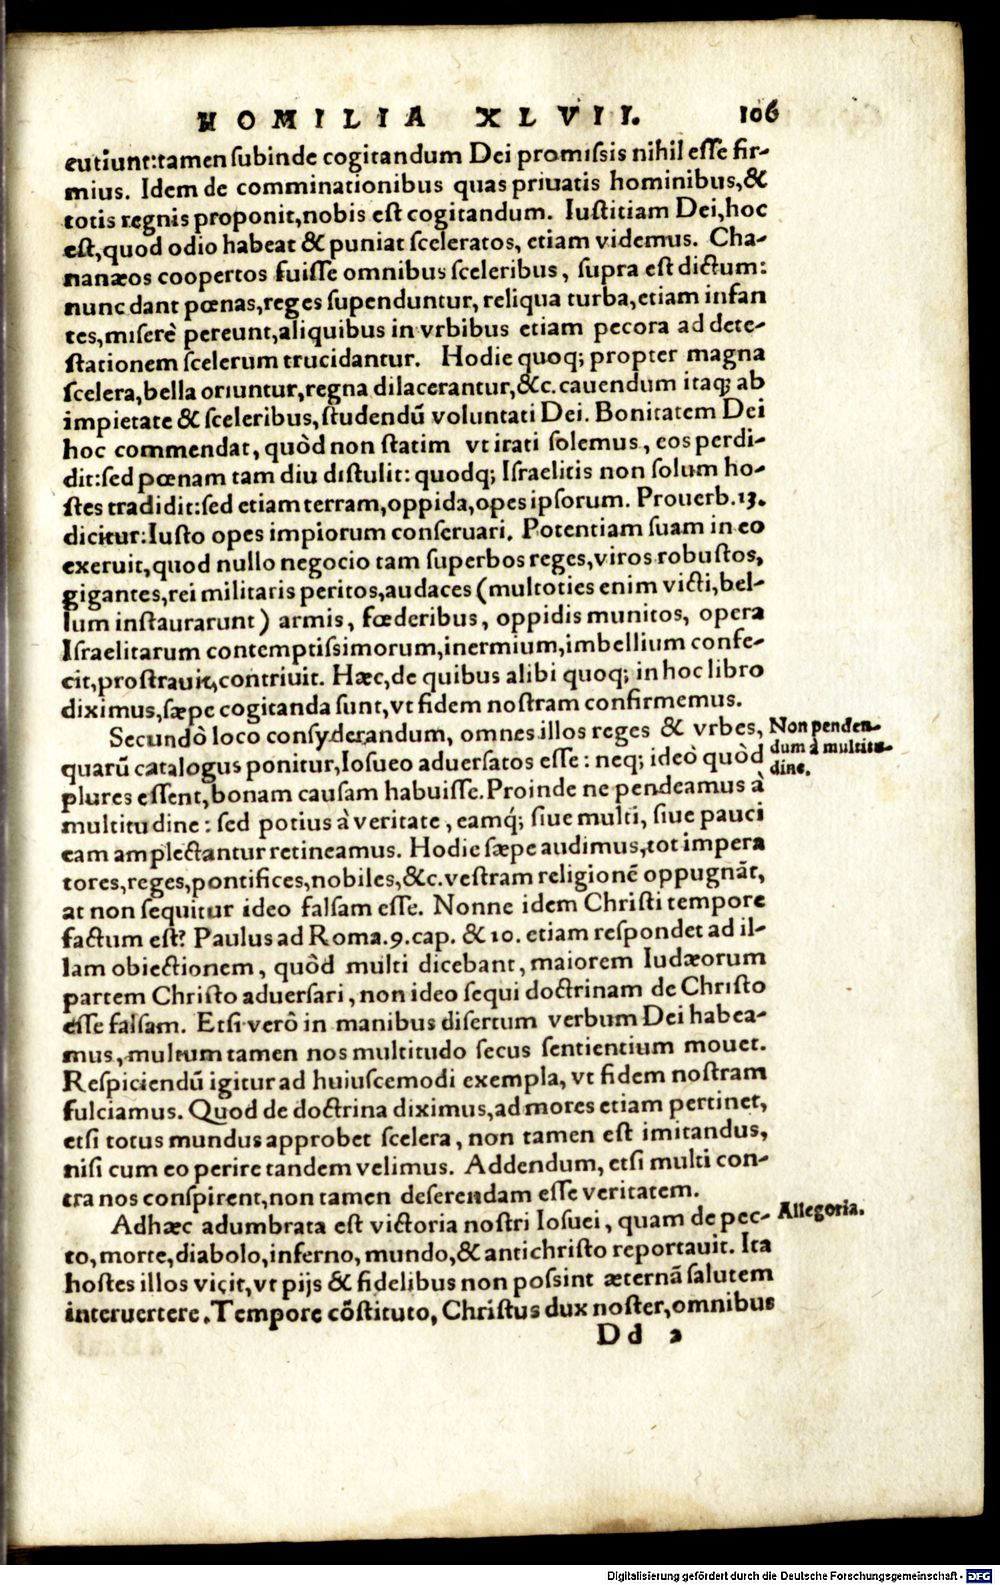 HOMILIA XLVII. 106
cutiunt:tamen subinde cogitandum Dei promissis nihil esse fir-
mius. Idem de comminationibus quas priuatis hominibus,&
totis regnis proponit,nobis est cogitandum. Iustitiam Dei,hoc
est,quod odio habeat & puniat sceleratos, etiam videmus. Cha-
nanæos coopertos fuisse omnibus sceleribus, supra est dictum:
nunc dant pœnas,reges supenduntur, reliqua turba,etiam infan
tes,miserè pereunt,aliquibus in vrbibus etiam pecora ad dete-
stationem scelerum trucidantur. Hodie quoq; propter magna
scelera,bella oriuntur,regna dilacerantur,&c.cauendum itaq; ab
impietate & sceleribus,studendū voluntati Dei. Bonitatem Dei
hoc commendat, quòd non statim vt irati solemus, eos perdi-
dit:sed pœnam tam diu distulit: quodq; Israelitis non solum ho-
stes tradidit:sed etiam terram,oppida,opes ipsorum. Prouerb.13.
dicitur:Iusto opes impiorum conseruari. Potentiam suam in eo
exeruit,quod nullo negocio tam superbos reges,viros robustos,
gigantes,rei militaris peritos,audaces (multoties enim victi,bel-
lum instaurarunt) armis, fœderibus, oppidis munitos, opera
Israelitarum contemptissimorum,inermium,imbellium confe-
cit,prostrauit,contriuit. Hæc,de quibus alibi quoq; in hoc libro
diximus,sæpe cogitanda sunt,vt fidem nostram confirmemus.
Secundò loco consyderandum, omnes illos reges & vrbes,
quarū catalogus ponitur,Iosueo aduersatos esse: neq; ideò quòd
plures essent,bonam causam habuisse.Proinde ne pendeamus à
multitudine: sed potius à veritate, eamq́; siue multi, siue pauci
eam amplectantur retineamus. Hodie sæpe audimus,tot impera
tores,reges,pontifices,nobiles,&c.vestram religionē oppugnāt,
at non sequitur ideo falsam esse. Nonne idem Christi tempore
factum est? Paulus ad Roma.9.cap. & 10. etiam respondet ad il-
lam obiectionem, quòd multi dicebant, maiorem Iudæorum
partem Christo aduersari, non ideo sequi doctrinam de Christo
esse falsam. Etsi verò in manibus disertum verbum Dei habea-
mus, multum tamen nos multitudo secus sentientium mouet.
Respiciendū igitur ad huiuscemodi exempla, vt fidem nostram
fulciamus. Quod de doctrina diximus,ad mores etiam pertinet,
etsi totus mundus approbet scelera, non tamen est imitandus,
nisi cum eo perire tandem velimus. Addendum, etsi multi con-
tra nos conspirent,non tamen deserendam esse veritatem.
Adhæc adumbrata est victoria nostri Iosuei, quam de pec-
to,morte,diabolo,inferno, mundo,& antichristo reportauit. Ita
hostes illos vicit,vt pijs & fidelibus non possint æternā salutem
interuertere.Tempore cōstituto, Christus dux noster,omnibus
Dd 2
Non penden-
dum à multitu-
dine.
Allegoria.
Digitalisierung gefördert durch die Deutsche Forschungsgemeinschaft - DFG